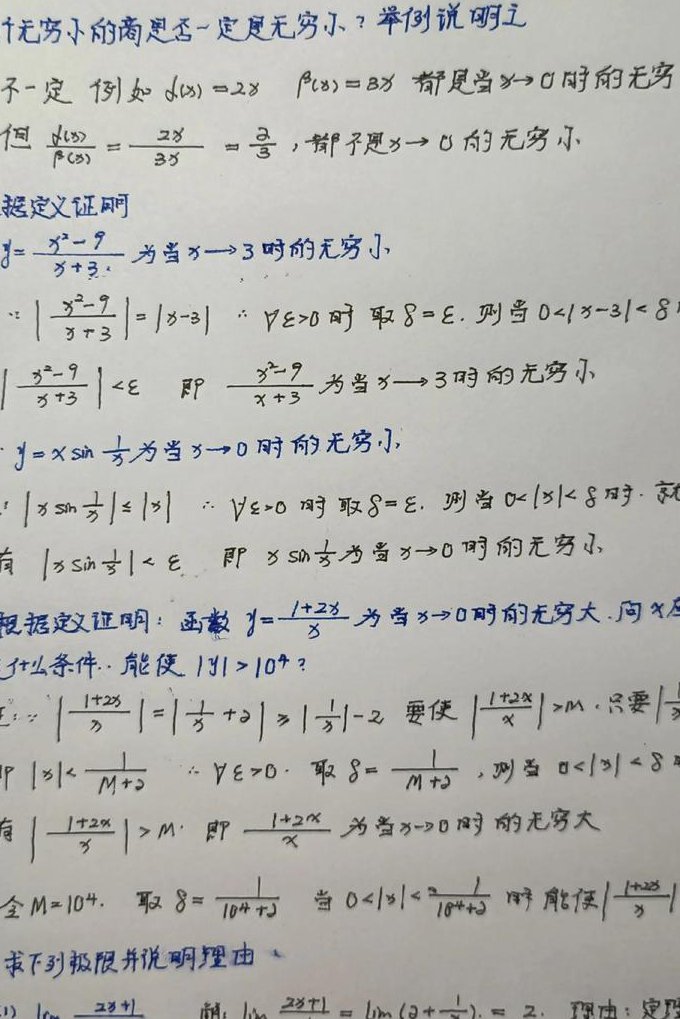 个无穷小的商是否一定是无穷小？举例说明之
不一定 例如 α(x)=2x β(x)=3x 都是当x→0时的无穷
但 α(x)/β(x) = 2x/3x = 2/3 , 都不是x→0的无穷小
据定义证明
y= (x²-9)/(x+3) 为当x→3时的无穷小
∵ |(x²-9)/(x+3)| = |x-3| ∴ ∀ε>0时 取δ=ε. 则当0<|x-3|<δ
|(x²-9)/(x+3)| <ε 即 (x²-9)/(x+3) 为当x→3时的无穷小
y=x sin 1/x 为当x→0时的无穷小,
∵ |x sin 1/x| ≤ |x| ∴ ∀ε>0时 取δ=ε. 则当0<|x|<δ时. 就
有 |x sin 1/x| < ε 即 x sin 1/x 为当x→0时的无穷小
根据定义证明: 函数 y= (1+2x)/x 为当x→0时的无穷大. 问x应
什么条件. 能使 |y|>10⁴?
∵ |(1+2x)/x| = |1/x +2| ≥ |1/x| -2 要使 |(1+2x)/x| >M. 只要
即 |x|< 1/(M+2) ∴ ∀ε>0. 取 δ= 1/(M+2) , 则当 0<|x|<δ
有 |(1+2x)/x| > M. 即 (1+2x)/x 为当x→0时的无穷大
令M=10⁴. 取 δ= 1/(10⁴+2) 当 0<|x|< 1/(10⁴+2) 时 能使 |(1+2x)/x|
求下列极限并说明理由
lim (2x+1) lim (2x+1) = lim (2+ 1/x) = 2. 理由: 定理